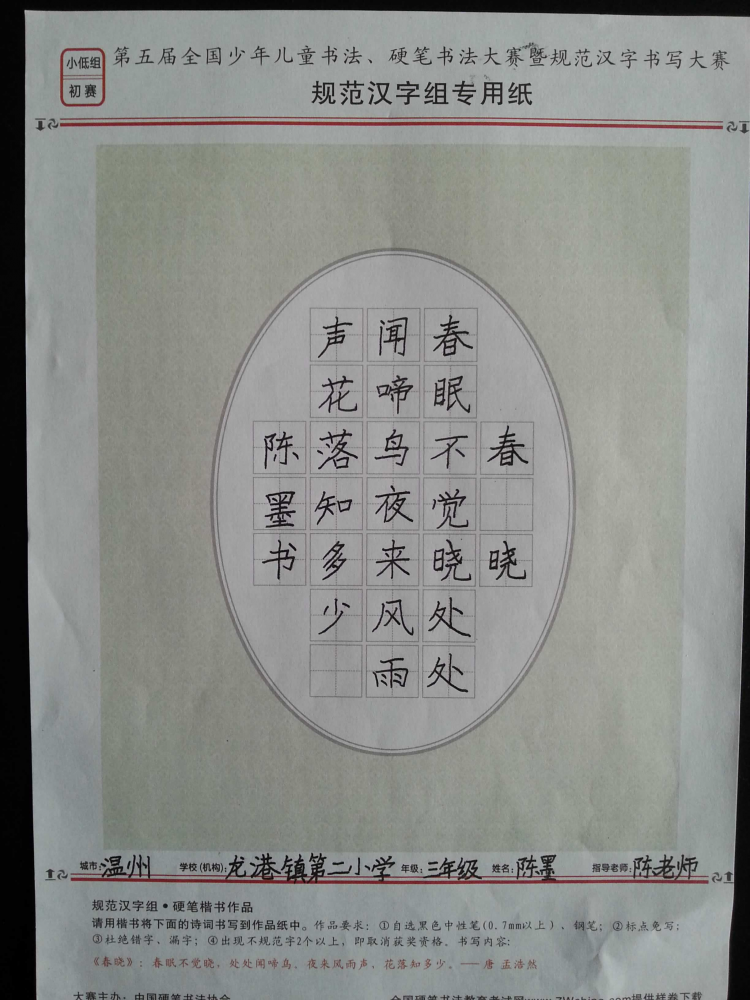 小低组
初赛
第五届全国少年儿童书法、硬笔书法大赛暨规范汉字书写大赛
规范汉字组专用纸
春晓
春眠不觉晓处处
闻啼鸟夜来风雨
声花落知多少
陈墨书
城市:温州 学校(机构):龙港镇第二小学 年级:三年级 姓名:陈墨 指导老师:陈老师
规范汉字组•硬笔楷书作品
请用楷书将下面的诗词书写到作品纸中。作品要求:①自选黑色中性笔(0.7mm以上)、钢笔;②标点免写;
③杜绝错字、漏字;④出现不规范字2个以上,即取消获奖资格。书写内容:
《春晓》:春眠不觉晓,处处闻啼鸟。夜来风雨声,花落知多少。——唐 孟浩然
大赛主办:中国硬笔书法协会 全国硬笔书法教育考试网www.7Wzhine.com提供样卷下载